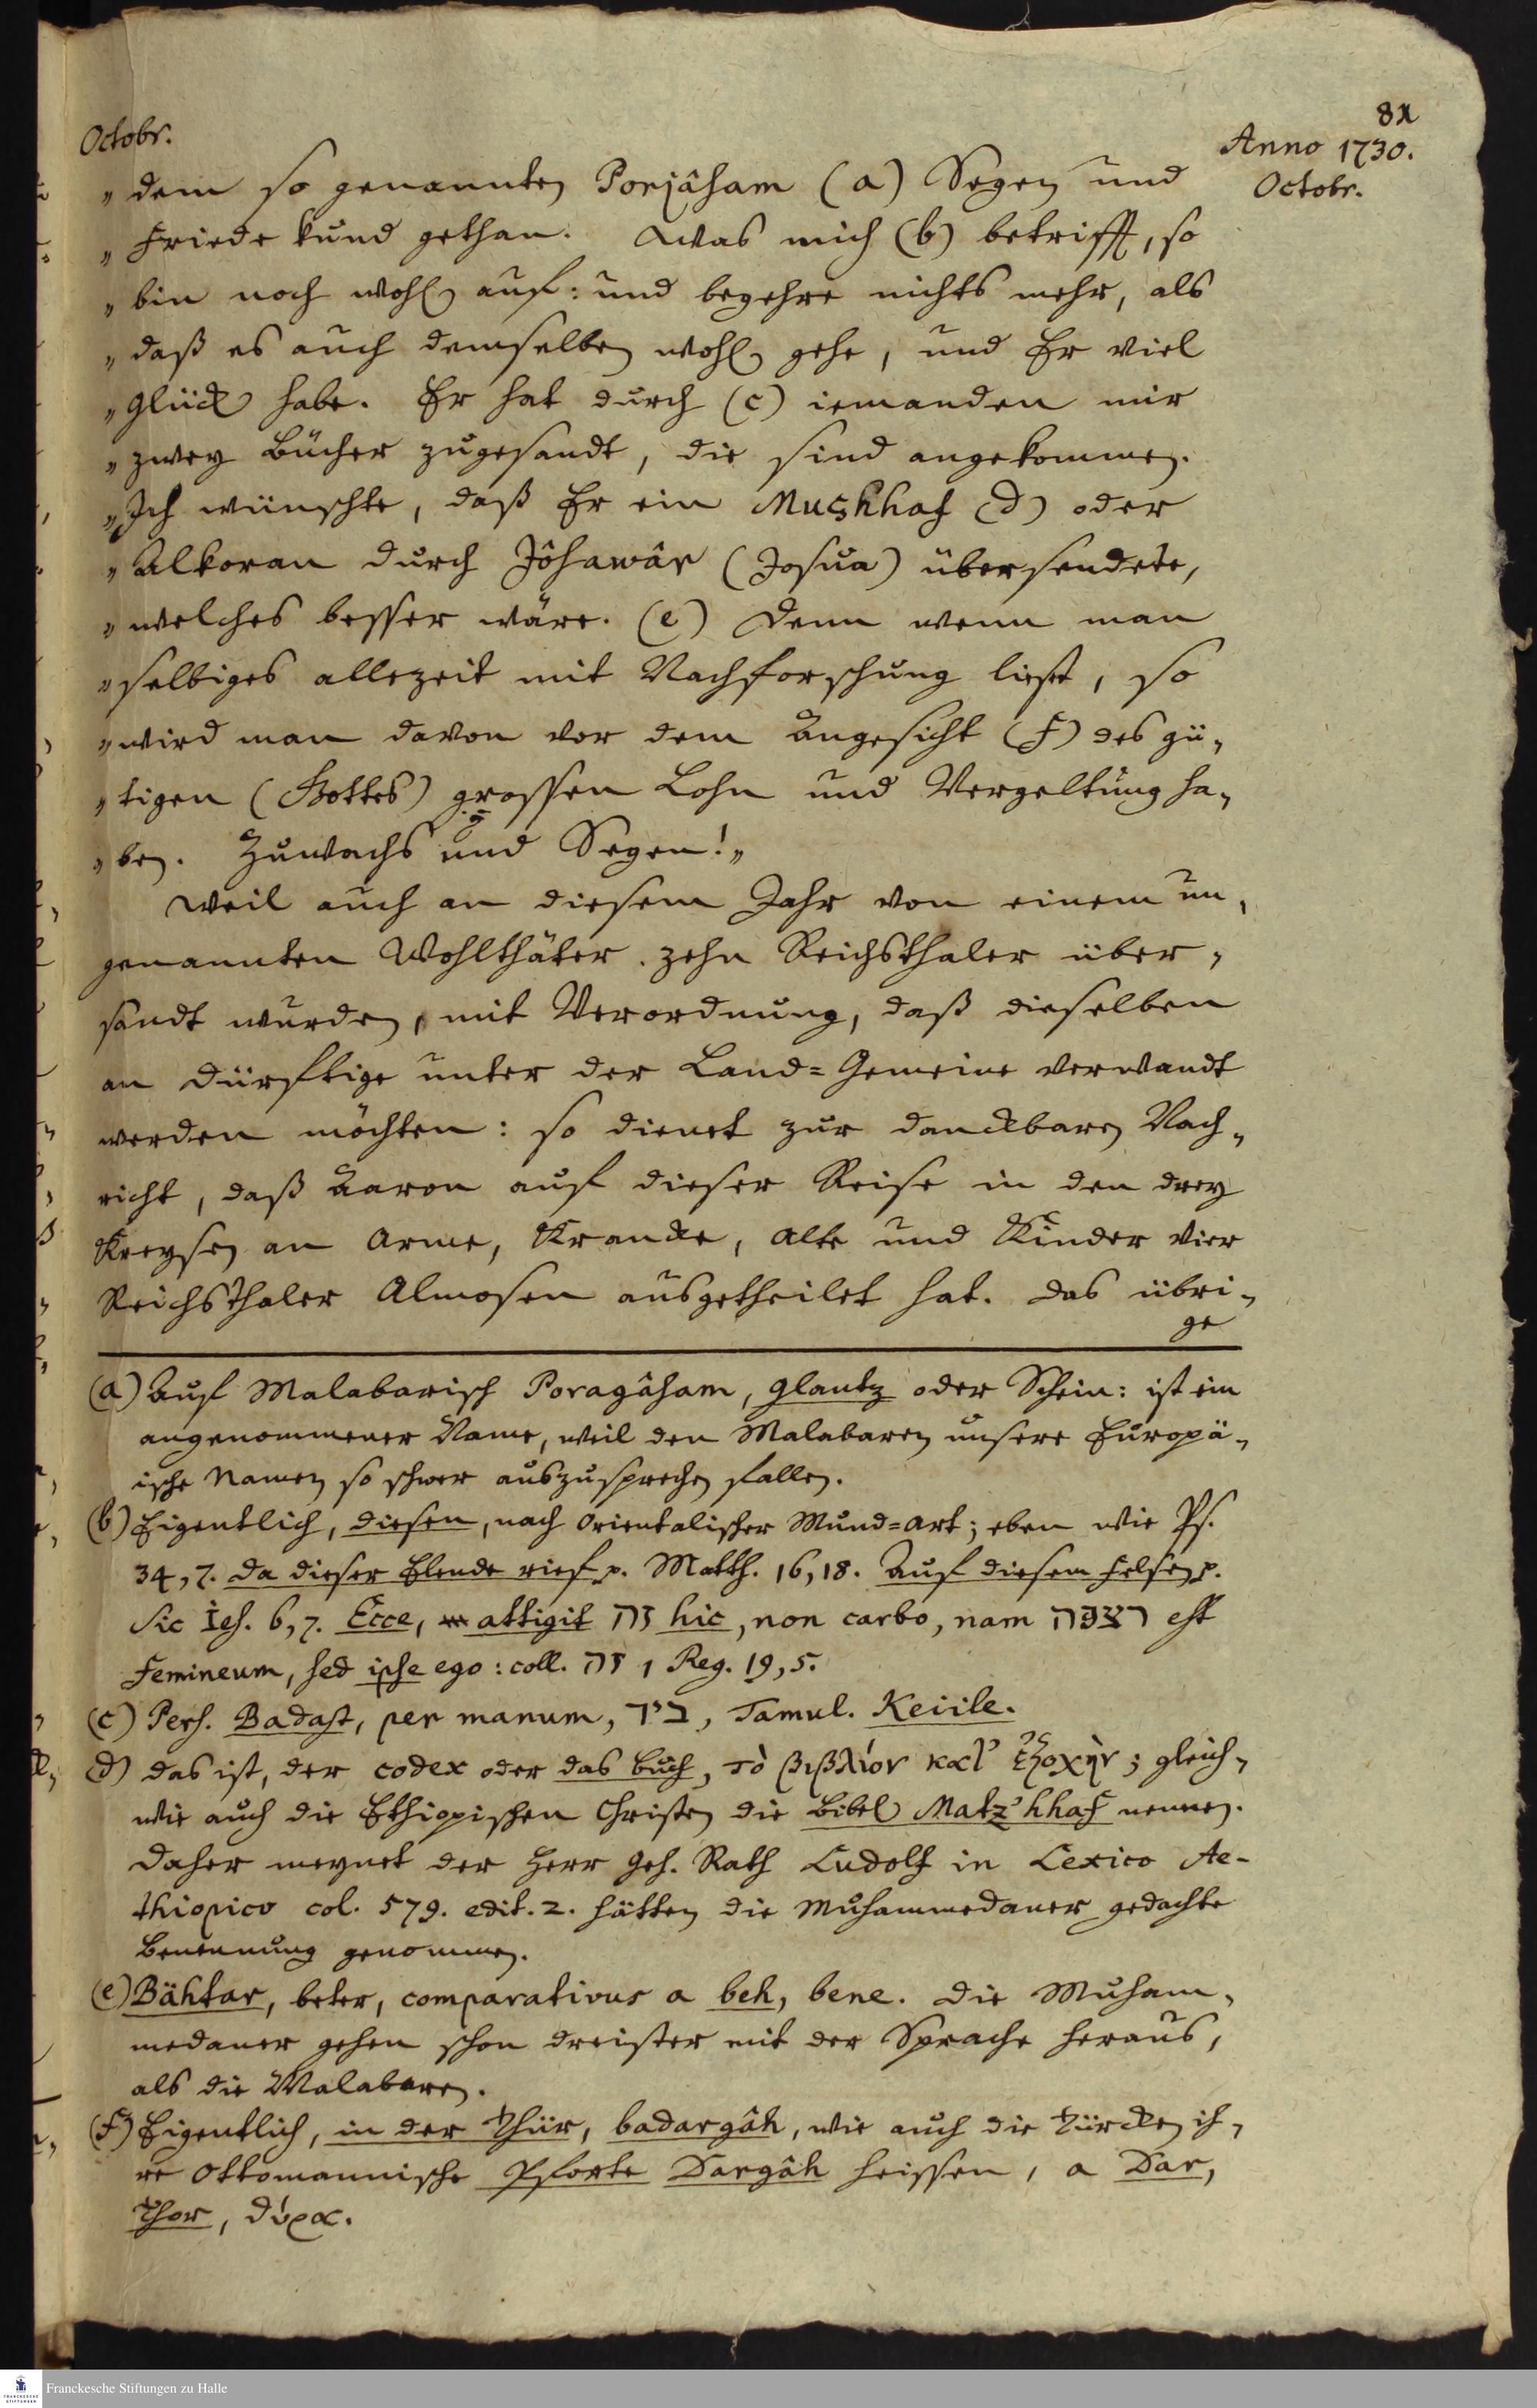 81
Octobr.
Anno 1730.
Octobr.
„dem so genannten Porjâsam (a) Segen und
„Friede kund gethan. Was mich (b) betrifft, so
„bin noch wohl auf: und begehre nichts mehr, als
„daß es auch demselben wohl gehe, und Er viel
„Glück habe. Er hat durch (c) iemanden mir
„zwey Bücher zugesandt, die sind angekommen.
„Ich wünschte, daß Er ein Mushhaf (d) oder
„Alkoran durch Jôsawâr (Josua) übersendete,
„welches besser wäre. (e) Denn wenn man
„selbiges allezeit mit Nachforschung liest, so
„wird man davon vor dem Angesicht (f) des gü„
„tigen (Gottes) grossen Lohn und Vergeltung ha„
„ben. Zuwachs und Segen!„
Weil auch an diesem Jahr von einem un„
genannten Wohlthäter zehn Reichsthaler über„
sandt wurden, mit Verordnung, daß dieselben
an Dürftige unter der Land=Gemeine verwandt
werden möchten: so dienet zur danckbaren Nach„
richt, daß Aaron auf dieser Reise in den drey
Kreysen an Arme, Krancke, Alte und Kinder vier
Reichsthaler Almosen ausgetheilet hat. Das übri„
ge
(a) Auf Malabarisch Poragâsam, Glantz oder Schein: ist ein
angenommener Name, weil den Malabaren unsere Europä„
ische Namen so schwer auszusprechen fallen.
(b) Eigentlich, diesen, nach Orientalischer Mund=Art; eben wie Ps.
34, 7. Da dieser Elende rief p. Matth. 16, 18. Auf diesem Felsen p.
Sic Ies. 6, 7. Ecce, attigit זה hic, non carbo, nam רצפה est
Femineum, sed ipse ego: coll. זה 1 Reg. 19, 5.
(c) Pers. Badast, per manum, ביד, Tamul. Keiile.
(d) das ist, der codex oder das Buch, τὸ βιβλίον κατ' ἐξοχὴν; gleich„
wie auch die Ethiopischen Christen die Bibel Matz'hhaf nennen.
Daher meynet der Herr Geh. Rath Ludolf in Lexico Ae-
thiopico col. 579. edit. 2. hätten die Muhammedaner gedachte
Benennung genommen.
(e) Bähtar, beter, comparativus a beh, bene. Die Muham„
medaner gehen schon dreister mit der Sprache heraus,
als die Malabaren.
(f) Eigentlich, in der Thür, badargâh, wie auch die Türcken ih„
re Ottomannische Pforte Dargâh heissen, a Dar,
Thor, θύρα.
Franckesche Stiftungen zu Halle